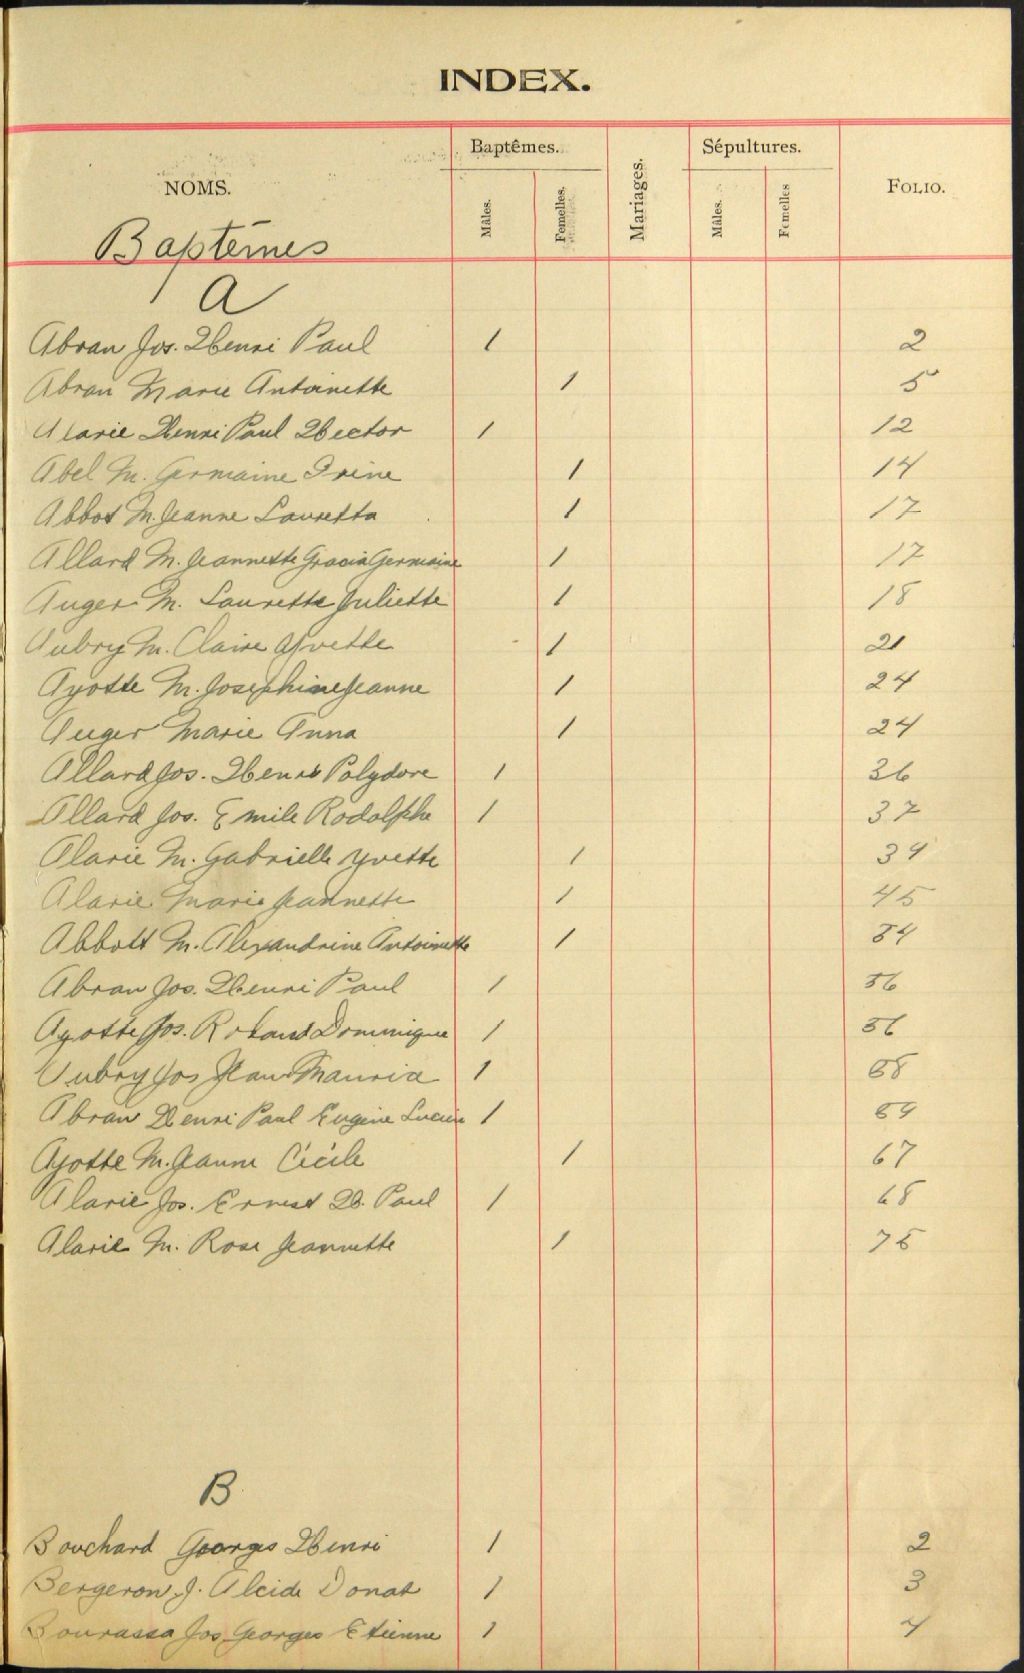 INDEX.
NOMS. Baptêmes. Mariages. Sépultures. FOLIO.
Mâles. Femelles. Mâles. Femelles
Baptêmes
A
Abran Jos. Henri Paul 1 2
Abran Marie Antoinette 1 5
Alarie Henri Paul Hector 1 12
Abel M. Germaine Irène 1 14
Abbot M. Jeanne Lauretta 1 17
Allard M. Jeannette Gracia Germaine 1 17
Auger M. Laurette Juliette 1 18
Aubry M. Claire Yvette 1 21
Ayotte M. Josephine Jeanne 1 24
Auger Marie Anna 1 24
Allard Jos. Henri Polydore 1 36
Allard Jos. Emile Rodolphe 1 37
Alarie M. Gabrielle Yvette 1 39
Alarie Marie Jeannette 1 45
Abbott M. Alexandrine Antoinette 1 54
Abran Jos. Henri Paul 1 56
Ayotte Jos. Roland Dominique 1 56
Aubry Jos Jean Maurice 1 58
Abran Henri Paul Eugène Lucien 1 59
Ayotte M. Jeanne Cécile 1 67
Alarie Jos. Ernest H. Paul 1 68
Alarie M. Rose Jeannette 1 75
B
Bouchard Georges Henri 1 2
Bergeron J. Alcide Donat 1 3
Bourassa Jos Georges Etienne 1 4